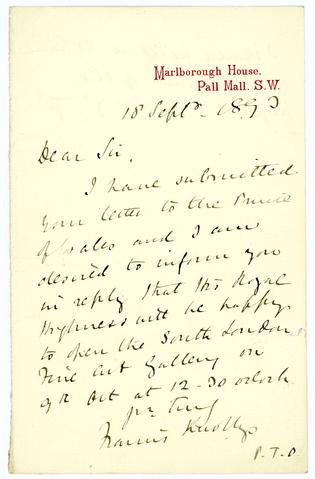 Marlborough House,
Pall Mall. S.W.
18 Septr. 1893
Dear Sir,
I have submitted
your letter to the Prince
of Wales and I am
desired to inform you
in reply that His Royal
Highness will be happy
to open the South London
Fine Art Gallery on
Oct at 12-30 o'clock
Francis Knollys
P.T.O